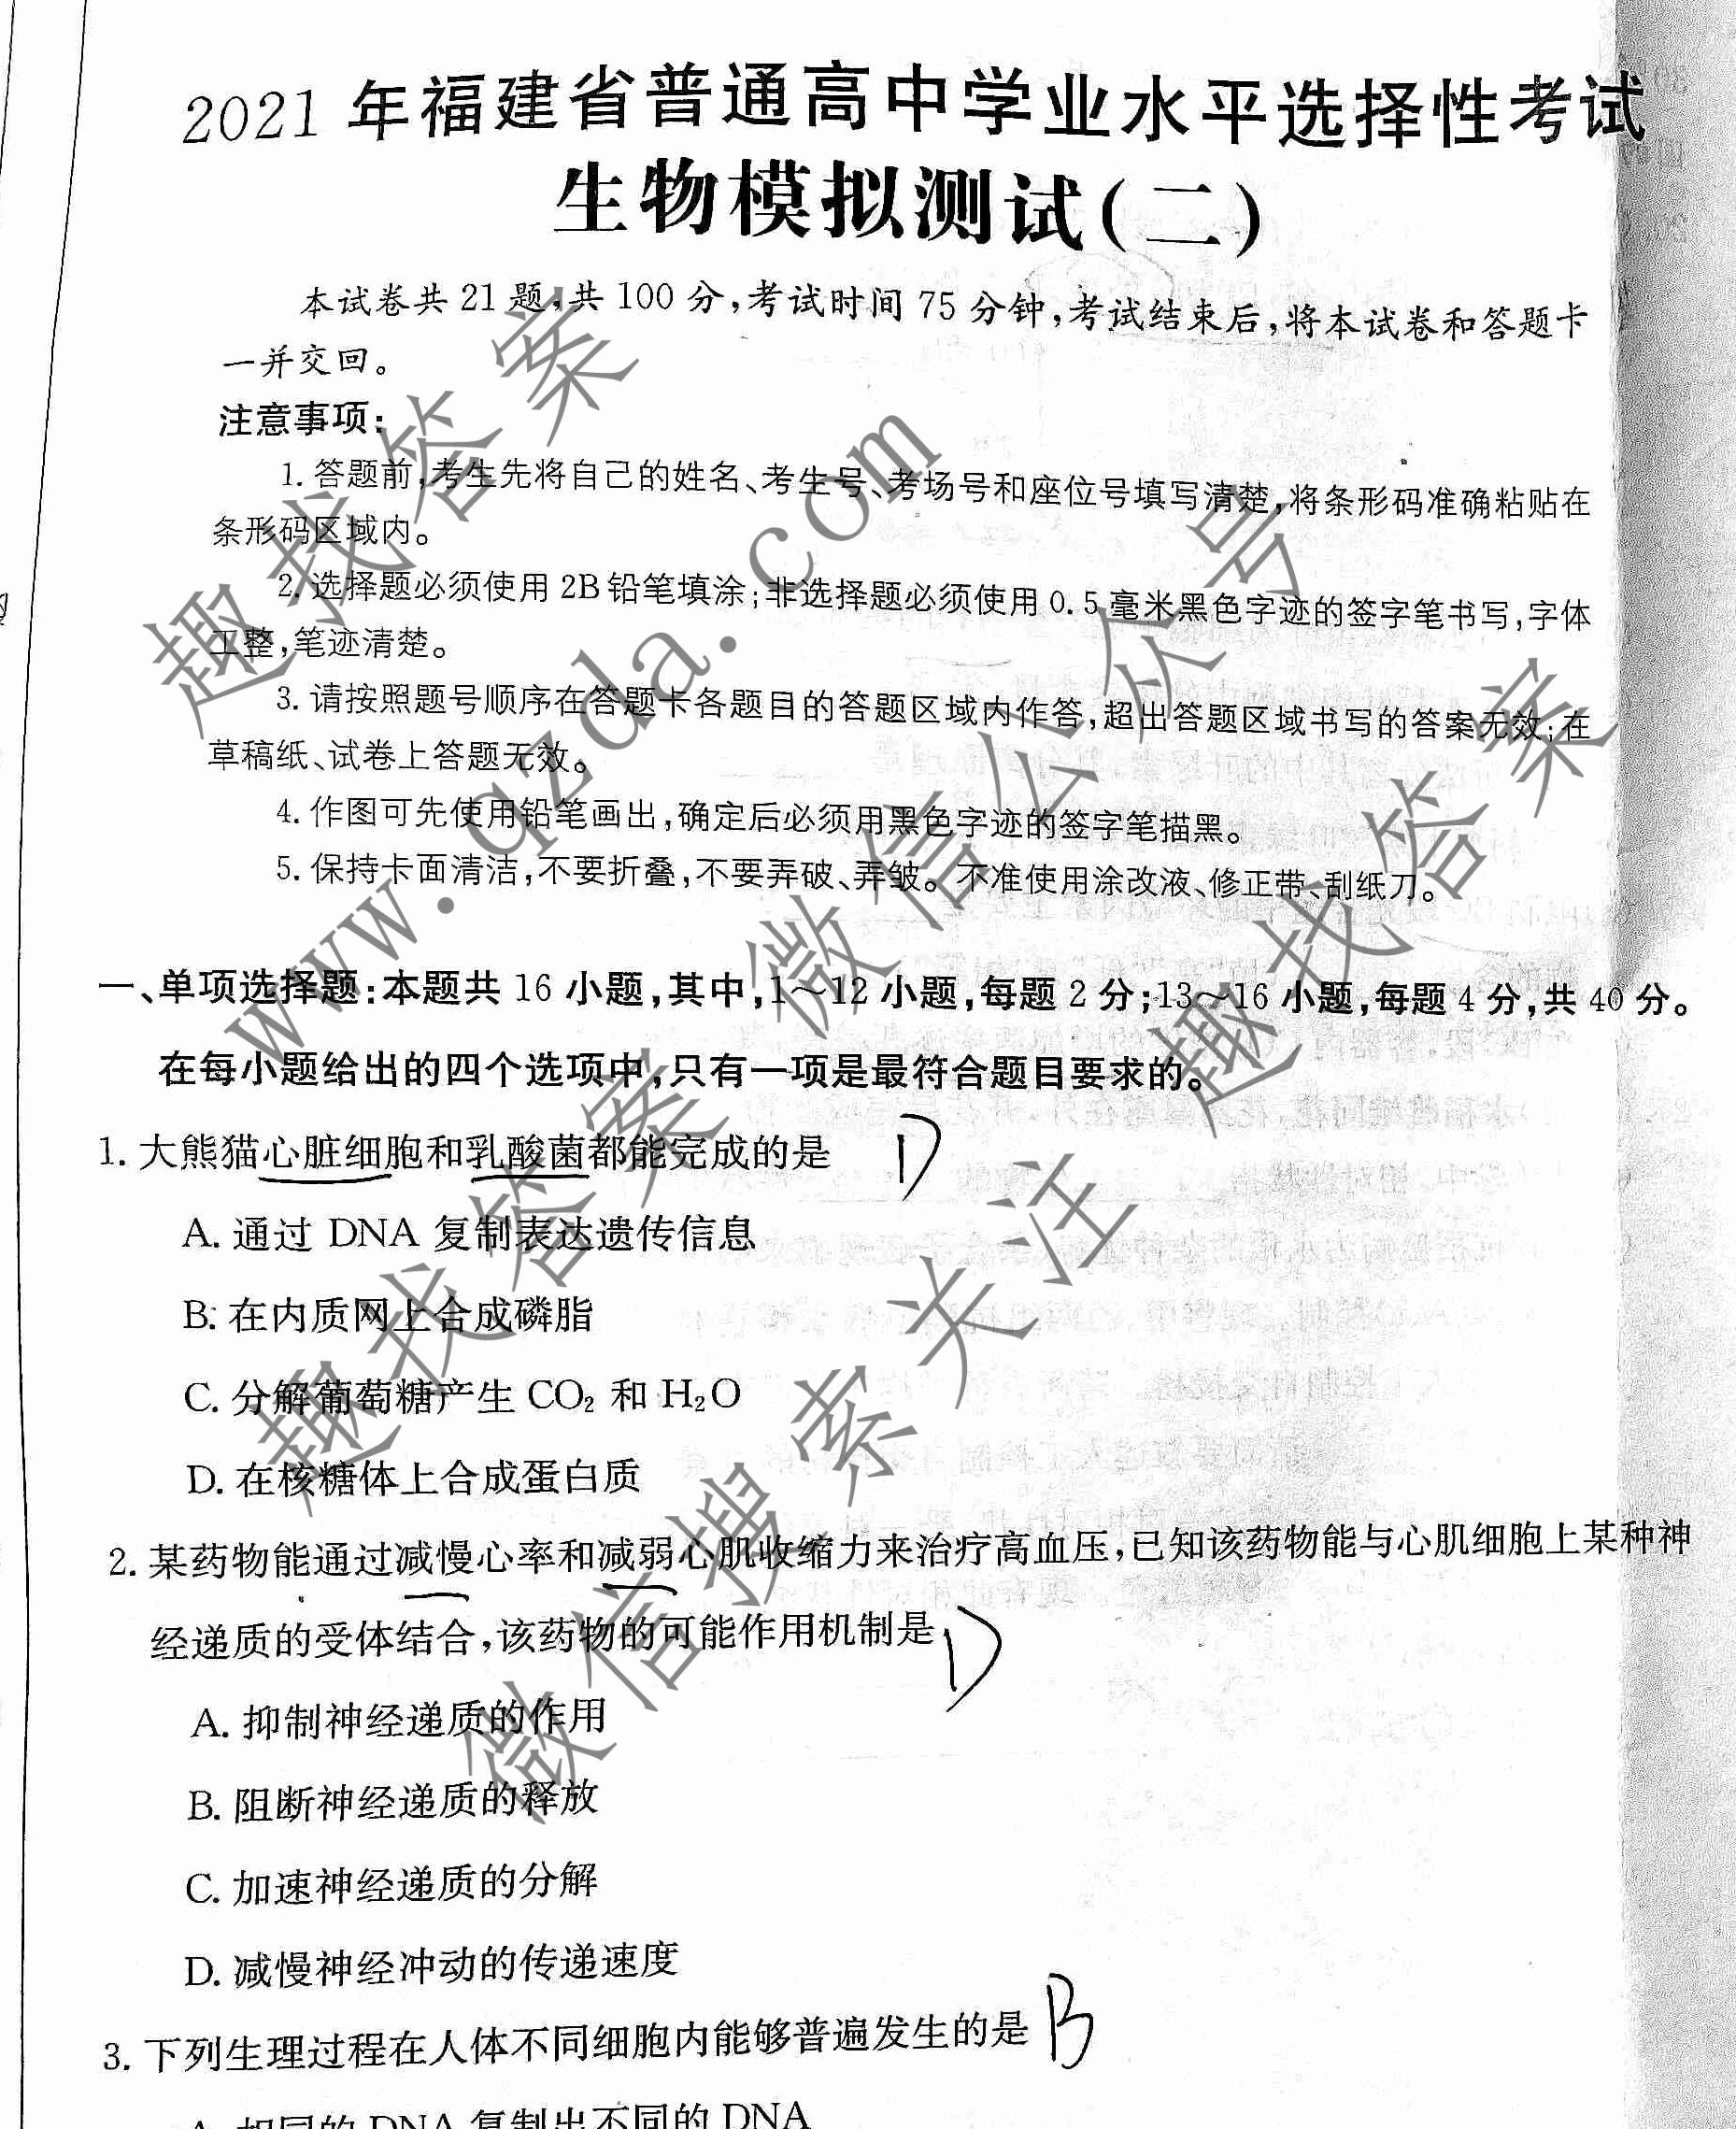 2021年福建省普通高中学业水平选择性考试
生物模拟测试(二)
本试卷共21题,共100分,考试时间75分钟,考试结束后,将本试卷和答题卡
一并交回。
注意事项:
1.答题前,考生先将自己的姓名、考生号、考场号和座位号填写清楚,将条形码准确粘贴在
条形码区域内。
2.选择题必须使用2B铅笔填涂;非选择题必须使用0.5毫米黑色字迹的签字笔书写,字体
工整,笔迹清楚。
3.请按照题号顺序在答题卡各题目的答题区域内作答,超出答题区域书写的答案无效;在
草稿纸、试卷上答题无效。
4.作图可先使用铅笔画出,确定后必须用黑色字迹的签字笔描黑。
5.保持卡面清洁,不要折叠,不要弄破、弄皱。不准使用涂改液、修正带、刮纸刀。
一、单项选择题:本题共16小题,其中,1~12小题,每题2分;13~16小题,每题4分,共40分。
在每小题给出的四个选项中,只有一项是最符合题目要求的。
1.大熊猫心脏细胞和乳酸菌都能完成的是 D
A.通过DNA复制表达遗传信息
B.在内质网上合成磷脂
C.分解葡萄糖产生CO₂和H₂O
D.在核糖体上合成蛋白质
2.某药物能通过减慢心率和减弱心肌收缩力来治疗高血压,已知该药物能与心肌细胞上某种神
经递质的受体结合,该药物的可能作用机制是 D
A.抑制神经递质的作用
B.阻断神经递质的释放
C.加速神经递质的分解
D.减慢神经冲动的传递速度
3.下列生理过程在人体不同细胞内能够普遍发生的是 B
A.相同的DNA复制出不同的DNA
趣找答案
www.qzda.com
微信公众号
趣找答案
趣找答案
微信搜索关注